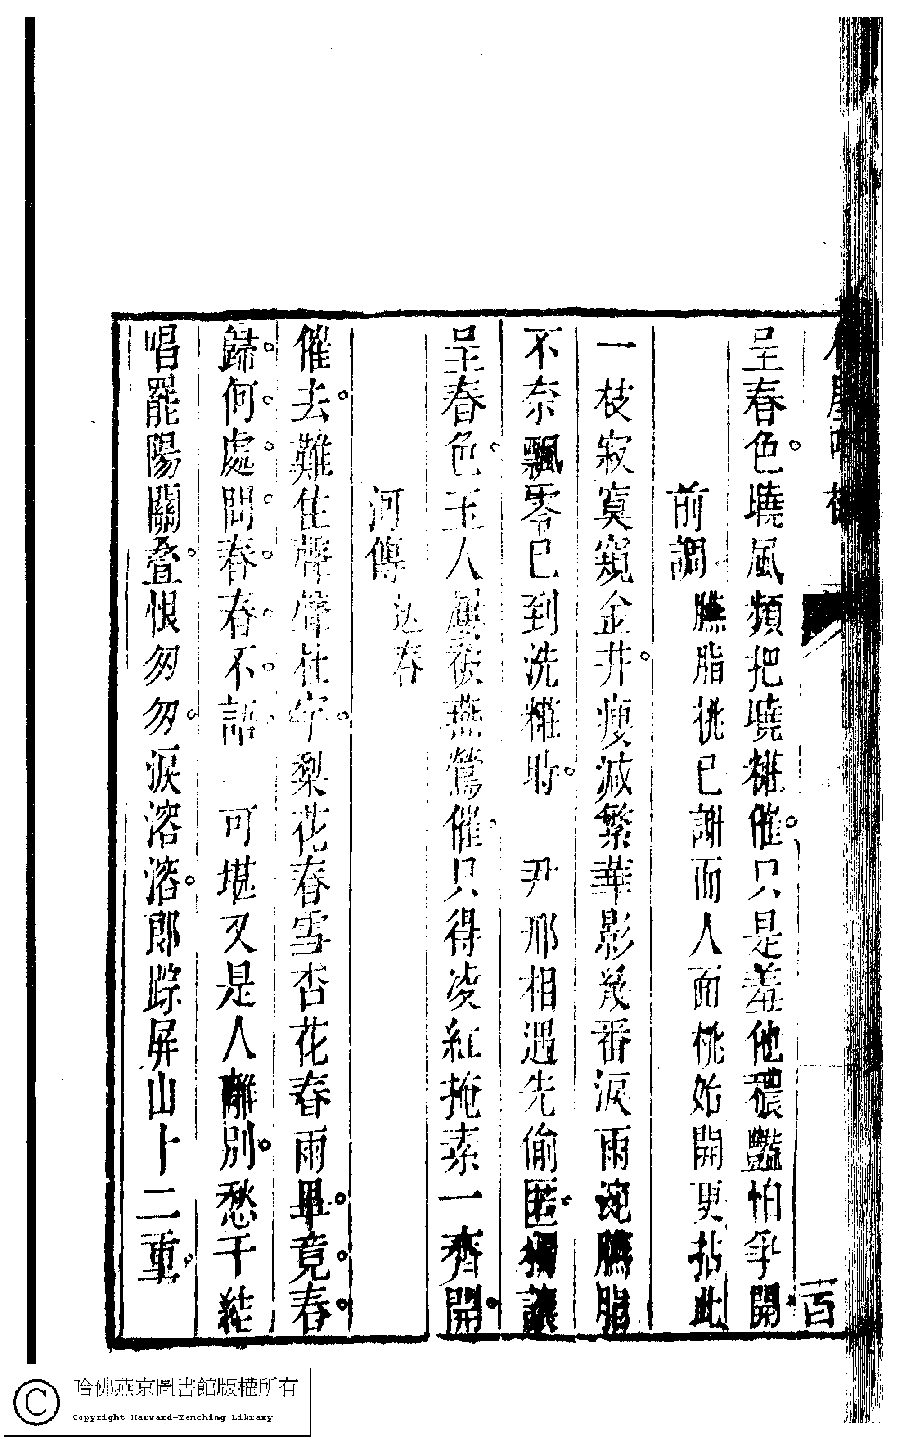 呈春色曉風頻把曉糚催只是羞他穠豔怕爭開
前調 臙脂桃已謝而人面桃始開更拈此
一枝寂寞窺金井瘦減繁華影幾番淚雨涴臙脂
不奈飄零已到洗糚時 尹邢相遇先偷匿獨讓
呈春色玉人 被燕鶯催只得凌紅掩素一齊開
河傳 送春
催去難住聲聲杜宇梨花春雪杏花春雨畢竟春
歸何處問春春不語 可堪又是人離別愁千結
唱罷陽關叠恨匆匆淚溶溶郎踪屏山十二重
百
哈佛燕京圖書館版權所有
Copyright Harvard-Yenching Library